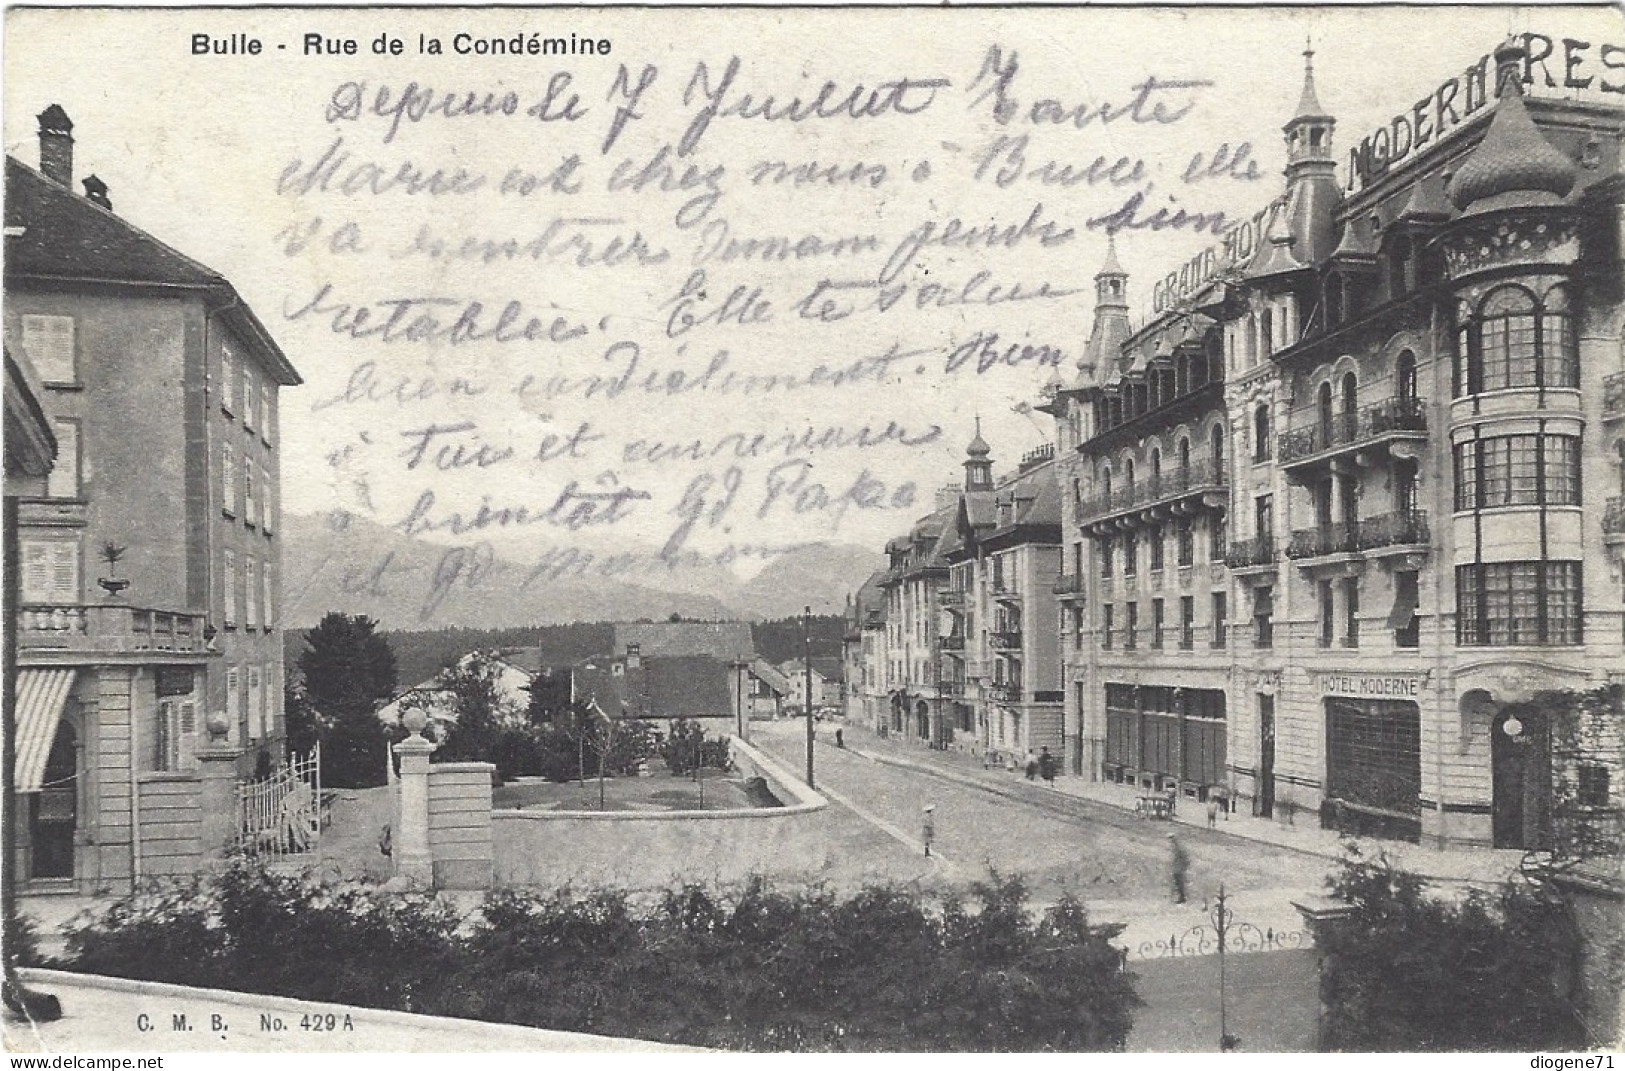 Bulle - Rue de la Condémine
Depuis le 7 Juillet Tante
Marie est chez nous à Bulle, elle
va rentrer demain bien
retablie. Elle te salue
bien cordialement. Bien
à toi et au revoir
à bientôt Gd. Papa
et Gd Maman
GRAND HOTEL MODERN RES
HOTEL MODERNE
C. M. B. No. 429 A
diogene71